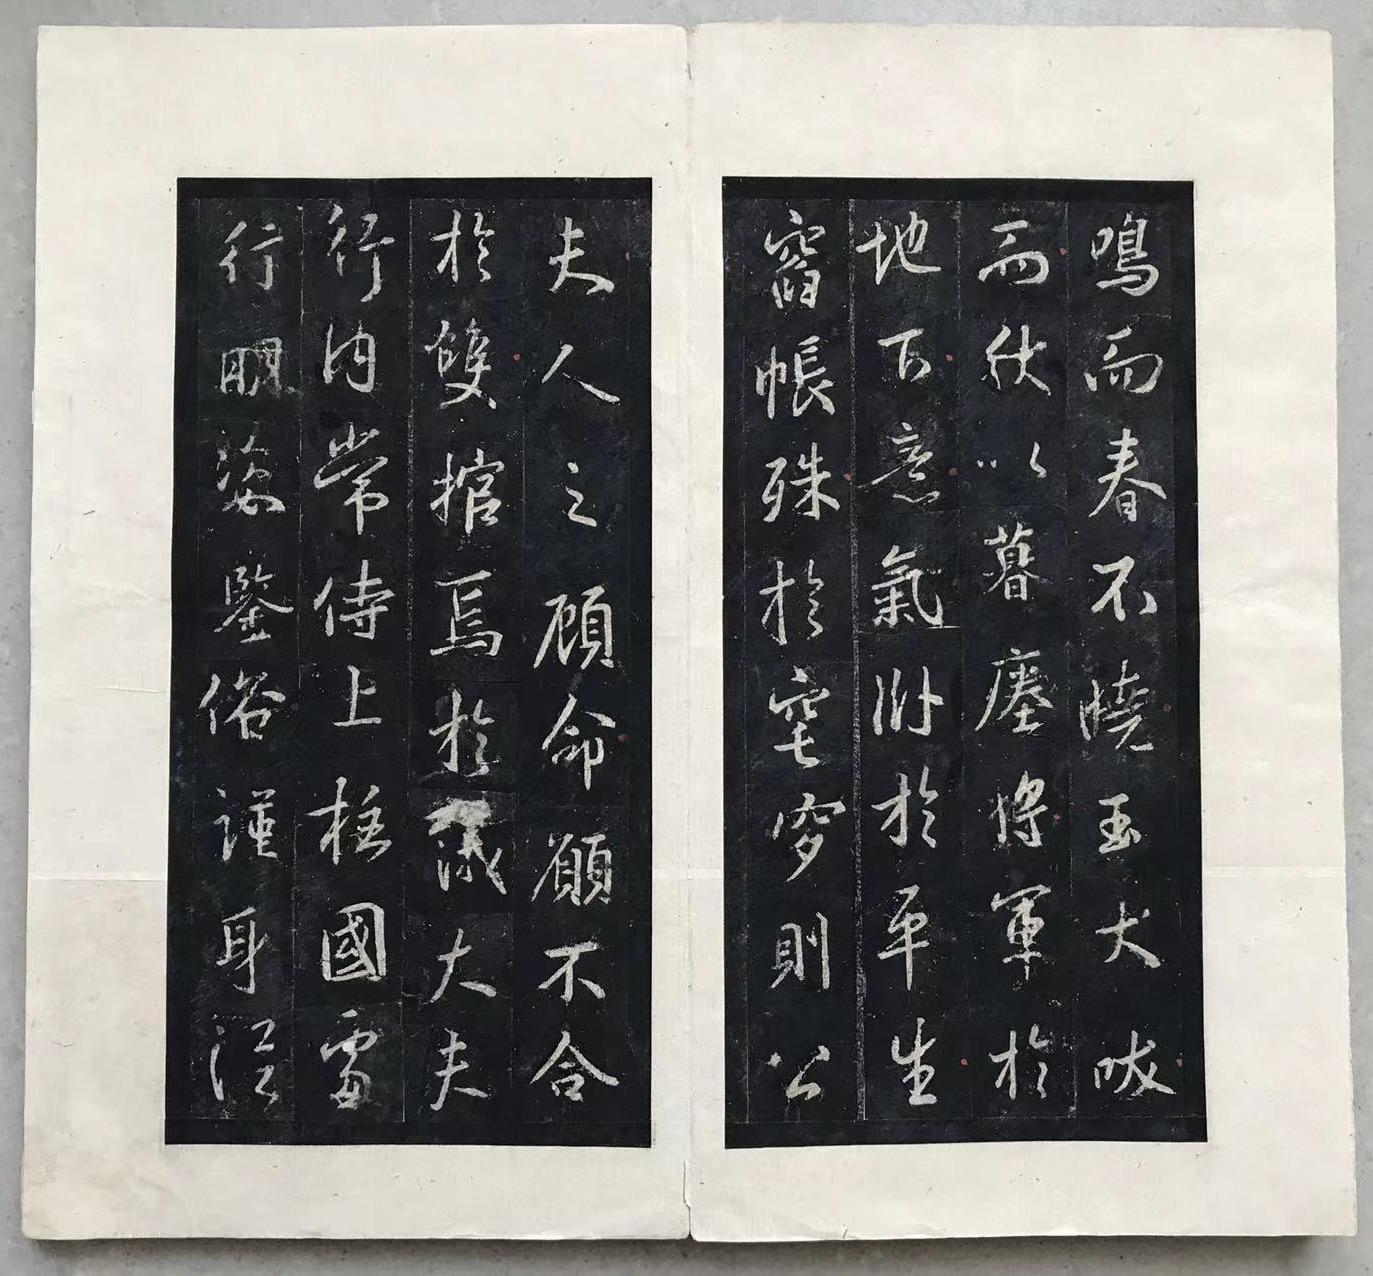 鳴而春不曉玉犬吠
而秋以暮塵將軍於
地下意氣於平生
窅帳殊於窀穸則公
夫人之顧命願不合
於雙棺焉於大夫
行內常侍上柱國雷
行明姿鑒俗謹身